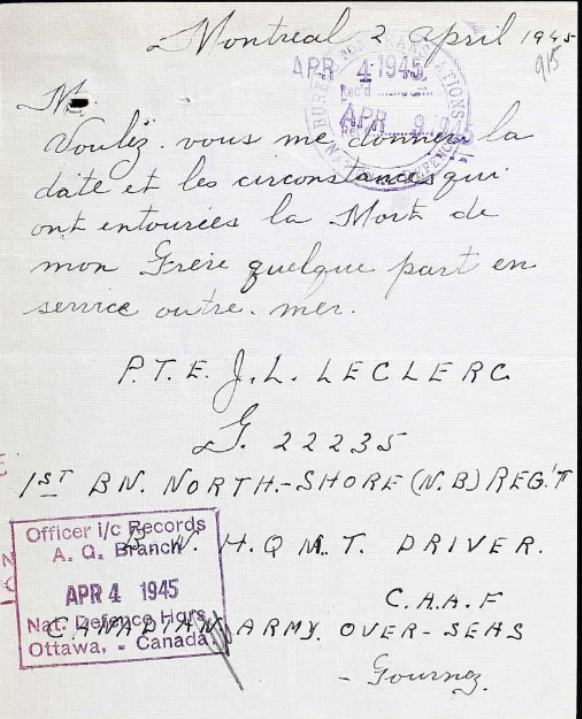 Montreal 2 april 1945
915
M.
Voulez-vous me donner la
date et les circonstances qui
ont entourées la Mort de
mon Frère quelque part en
service outre-mer.
P.T.E. J.L. LECLERC
G. 22235
1ST BN. NORTH-SHORE (N.B) REG'T
B.N. H.Q M.T. DRIVER.
C.A.A.F
CANADIAN ARMY OVER-SEAS
- Tournez.
BUREAU FOR TRANSLATIONS
APR 4 1945
Rec'd
APR 9
Officer i/c Records
A. G. Branch
APR 4 1945
Nat. Defence Hqrs.
Ottawa, - Canada